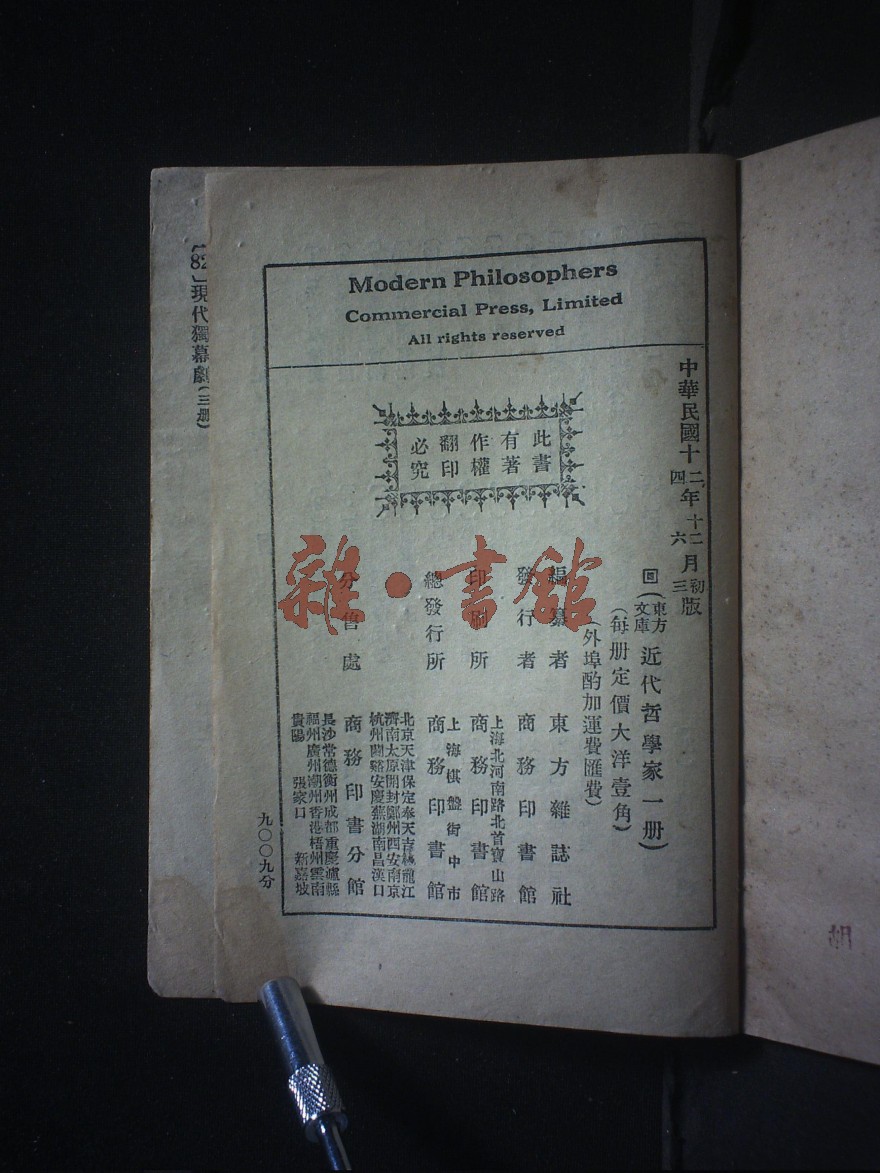 Modern Philosophers
Commercial Press, Limited
All rights reserved
中華民國十二年十二月初版
四 六 三
此書
有著
作權
翻印
必究
回(東方文庫)近代哲學家一册)
(每册定價大洋壹角)
(外埠酌加運費匯費)
編纂者 東方雜誌社
發行者 商務印書館
印刷所 上海北河南路北首寶山路
商務印書館
總發行所 上海棋盤街中市
商務印書館
分售處 商務印書分館
北京天津保定奉天吉林龍江
濟南太原開封鄭州西安南京
杭州蘭谿安慶蕪湖南昌漢口
長沙常德衡州成都重慶瀘縣
福州廣州潮州香港梧州雲南
貴陽 張家口 新嘉坡
九〇〇九分
〔82〕現代獨幕劇(三册)
雜·書館